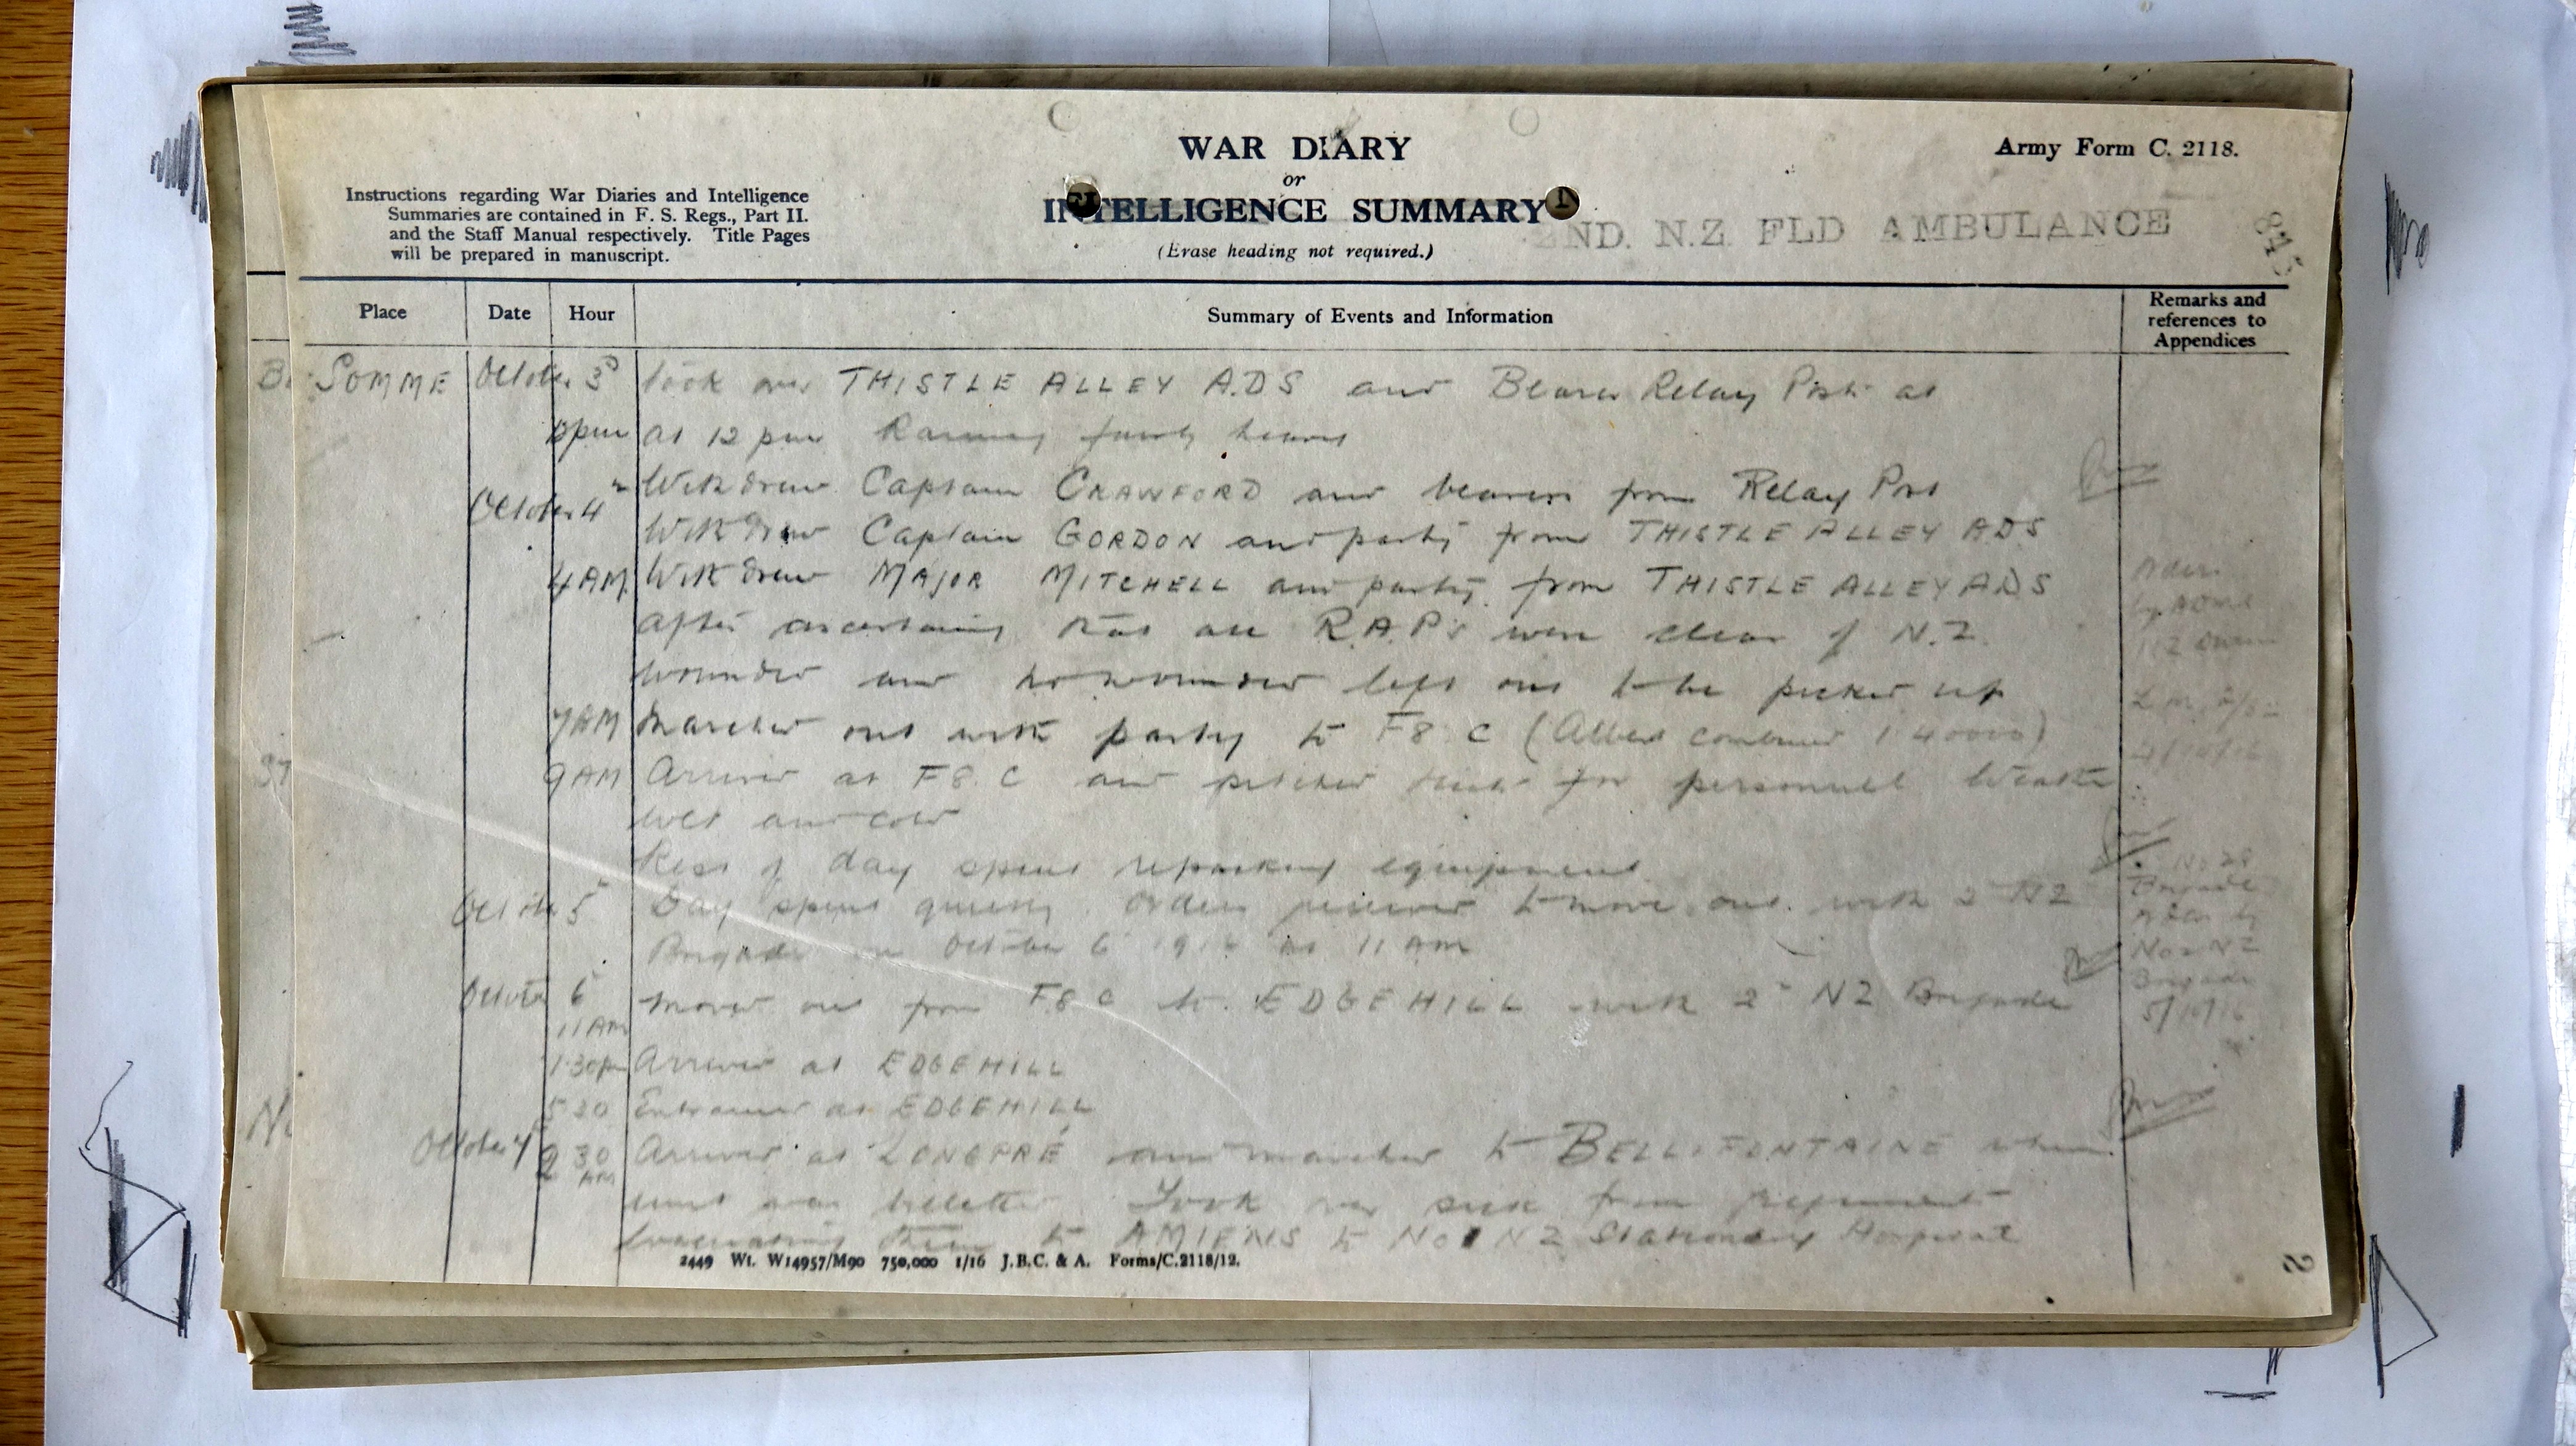 WAR DIARY
or
INTELLIGENCE SUMMARY
(Erase heading not required.)
Army Form C. 2118.
Instructions regarding War Diaries and Intelligence
Summaries are contained in F. S. Regs., Part II.
and the Staff Manual respectively. Title Pages
will be prepared in manuscript.
2ND. N.Z. FLD AMBULANCE
845
Place Date Hour Summary of Events and Information Remarks and references to Appendices
SOMME October 3 took over THISTLE ALLEY A.D.S and Bearer Relay Post at
pm at 12 pm Raining fairly heavy
October 4 Withdrew Captain CRAWFORD and bearers from Relay Post
Withdrew Captain GORDON and party from THISTLE ALLEY ADS
4 AM Withdrew MAJOR MITCHELL and party from THISTLE ALLEY ADS
after ascertaining that all R.A.P's were clear of N.Z.
wounded and no wounded left out to be picked up
7 AM Marched out with party to F8.C (Albert combined 1.40000)
9 AM Arrived at F8.C and pitched tents for personnel Weather
wet and cold
Rest of day spent repacking equipment
October 5 Day spent quietly. Orders received to move out with 2 NZ
Brigade on October 6 1916 at 11 AM
October 6 11 AM Moved out from F8 C to EDGEHILL with 2 NZ Brigade
1.30 pm Arrived at EDGEHILL
5 30 Entrained at EDGEHILL
October 7 9 30 AM Arrived at LONGPRÉ and marched to BELLIFONTAINE where
unit was billetted. Took over sick from regiments
Evacuating them to AMIENS to No 1 NZ Stationary Hospital
Orders
by ADMS
NZ Division
4/10/16
No 28
Brigade
Order by
No 2 NZ
Brigade
5/10/16
2449 Wt. W14957/M90 750,000 1/16 J.B.C. & A. Forms/C.2118/12.